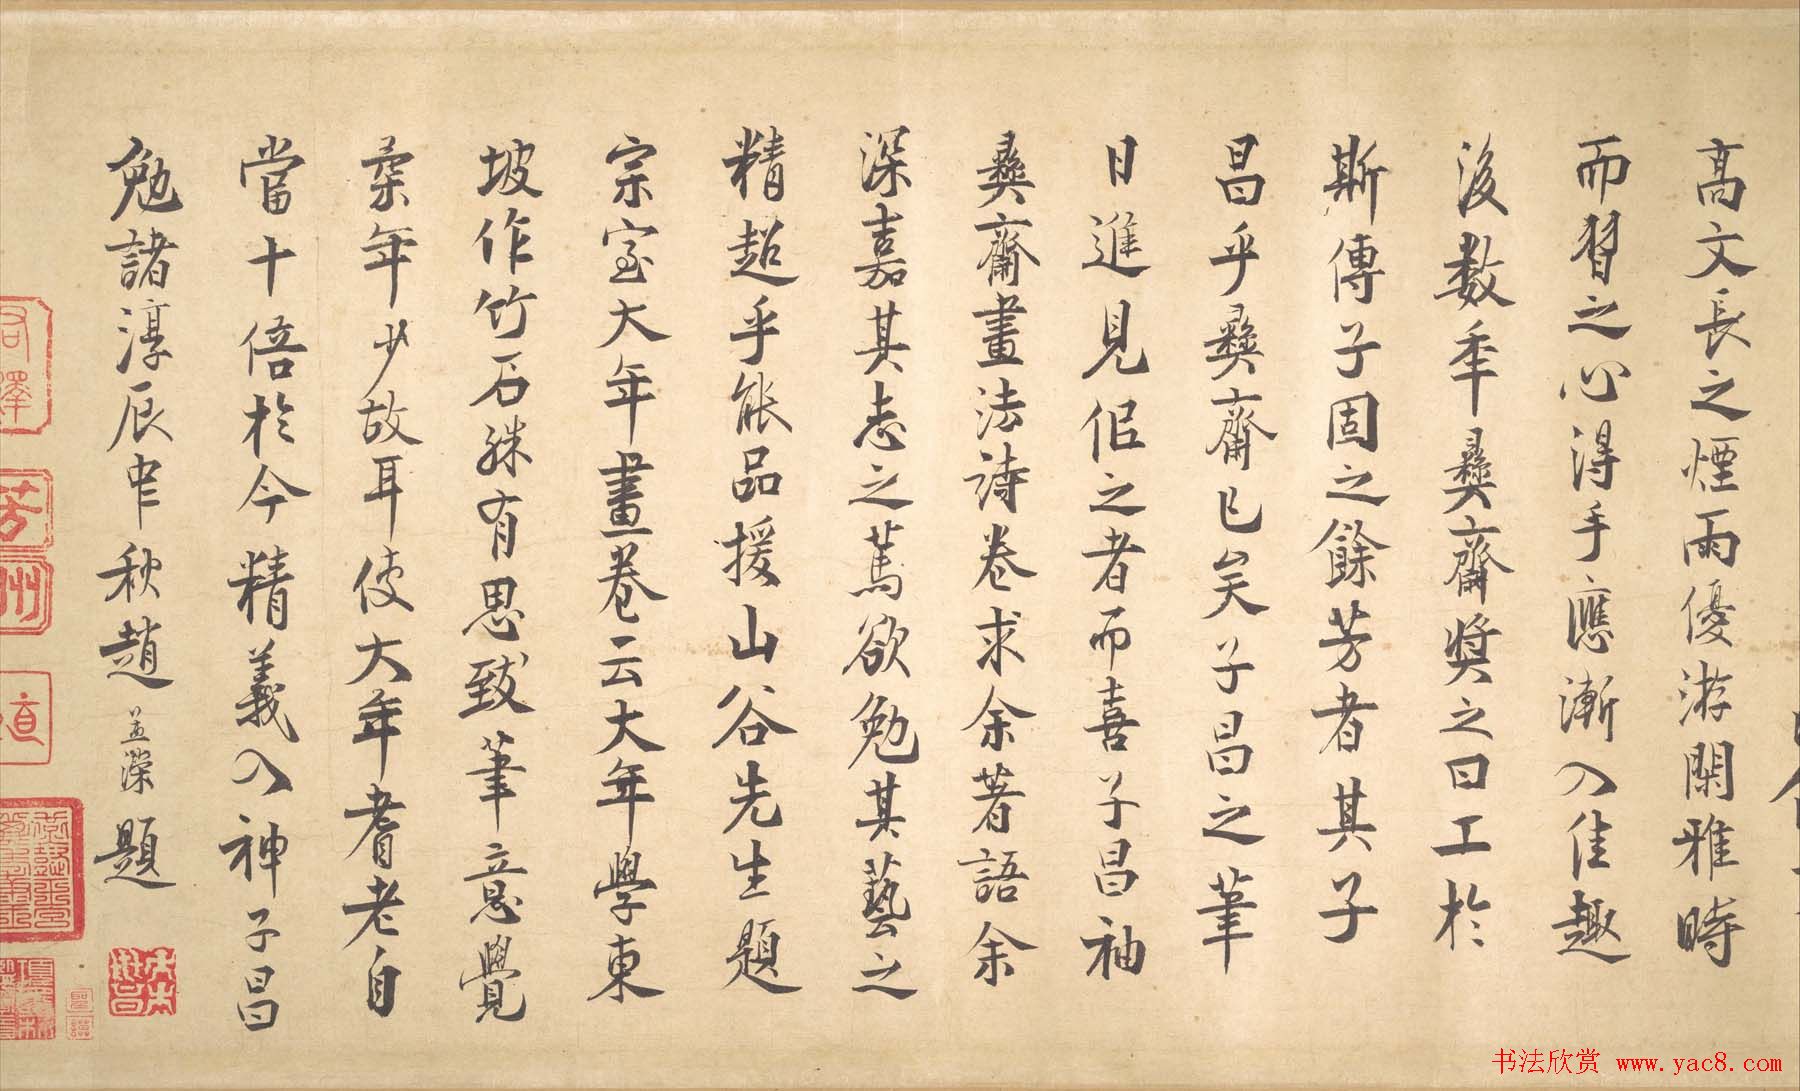 高文長之煙雨優游閑雅時
而習之心得手應漸入佳趣
後数年彝齋奬之曰工於
斯傳子固之餘芳者其子
昌乎彝齋已矣子昌之筆
日進見但之者而喜子昌袖
彝齋畫法詩卷求余著語余
深嘉其志之篤欲勉其藝之
精超乎能品援山谷先生題
宗室大年畫卷云大年學東
坡作竹石殊有思致筆意覺
柔年少故耳使大年耆老自
當十倍於今精義入神子昌
勉諸淳辰中秋趙孟濚題
书法欣赏 www.yac8.com